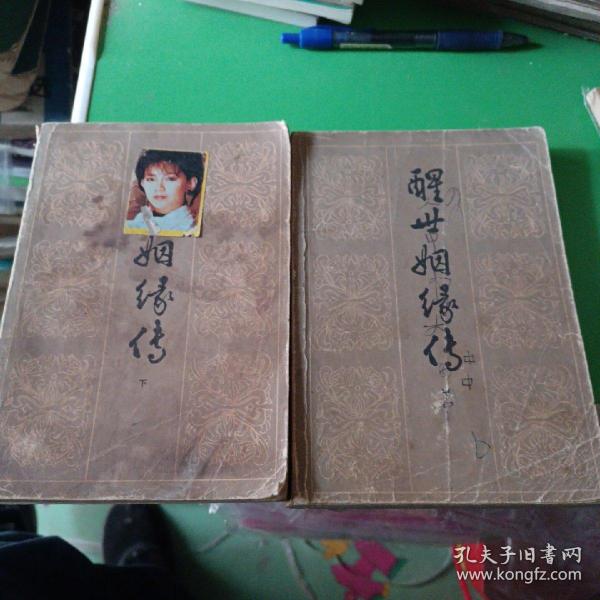 姻缘传
下
醒世姻缘传
中
中
b
孔夫子旧书网
www.kongfz.com